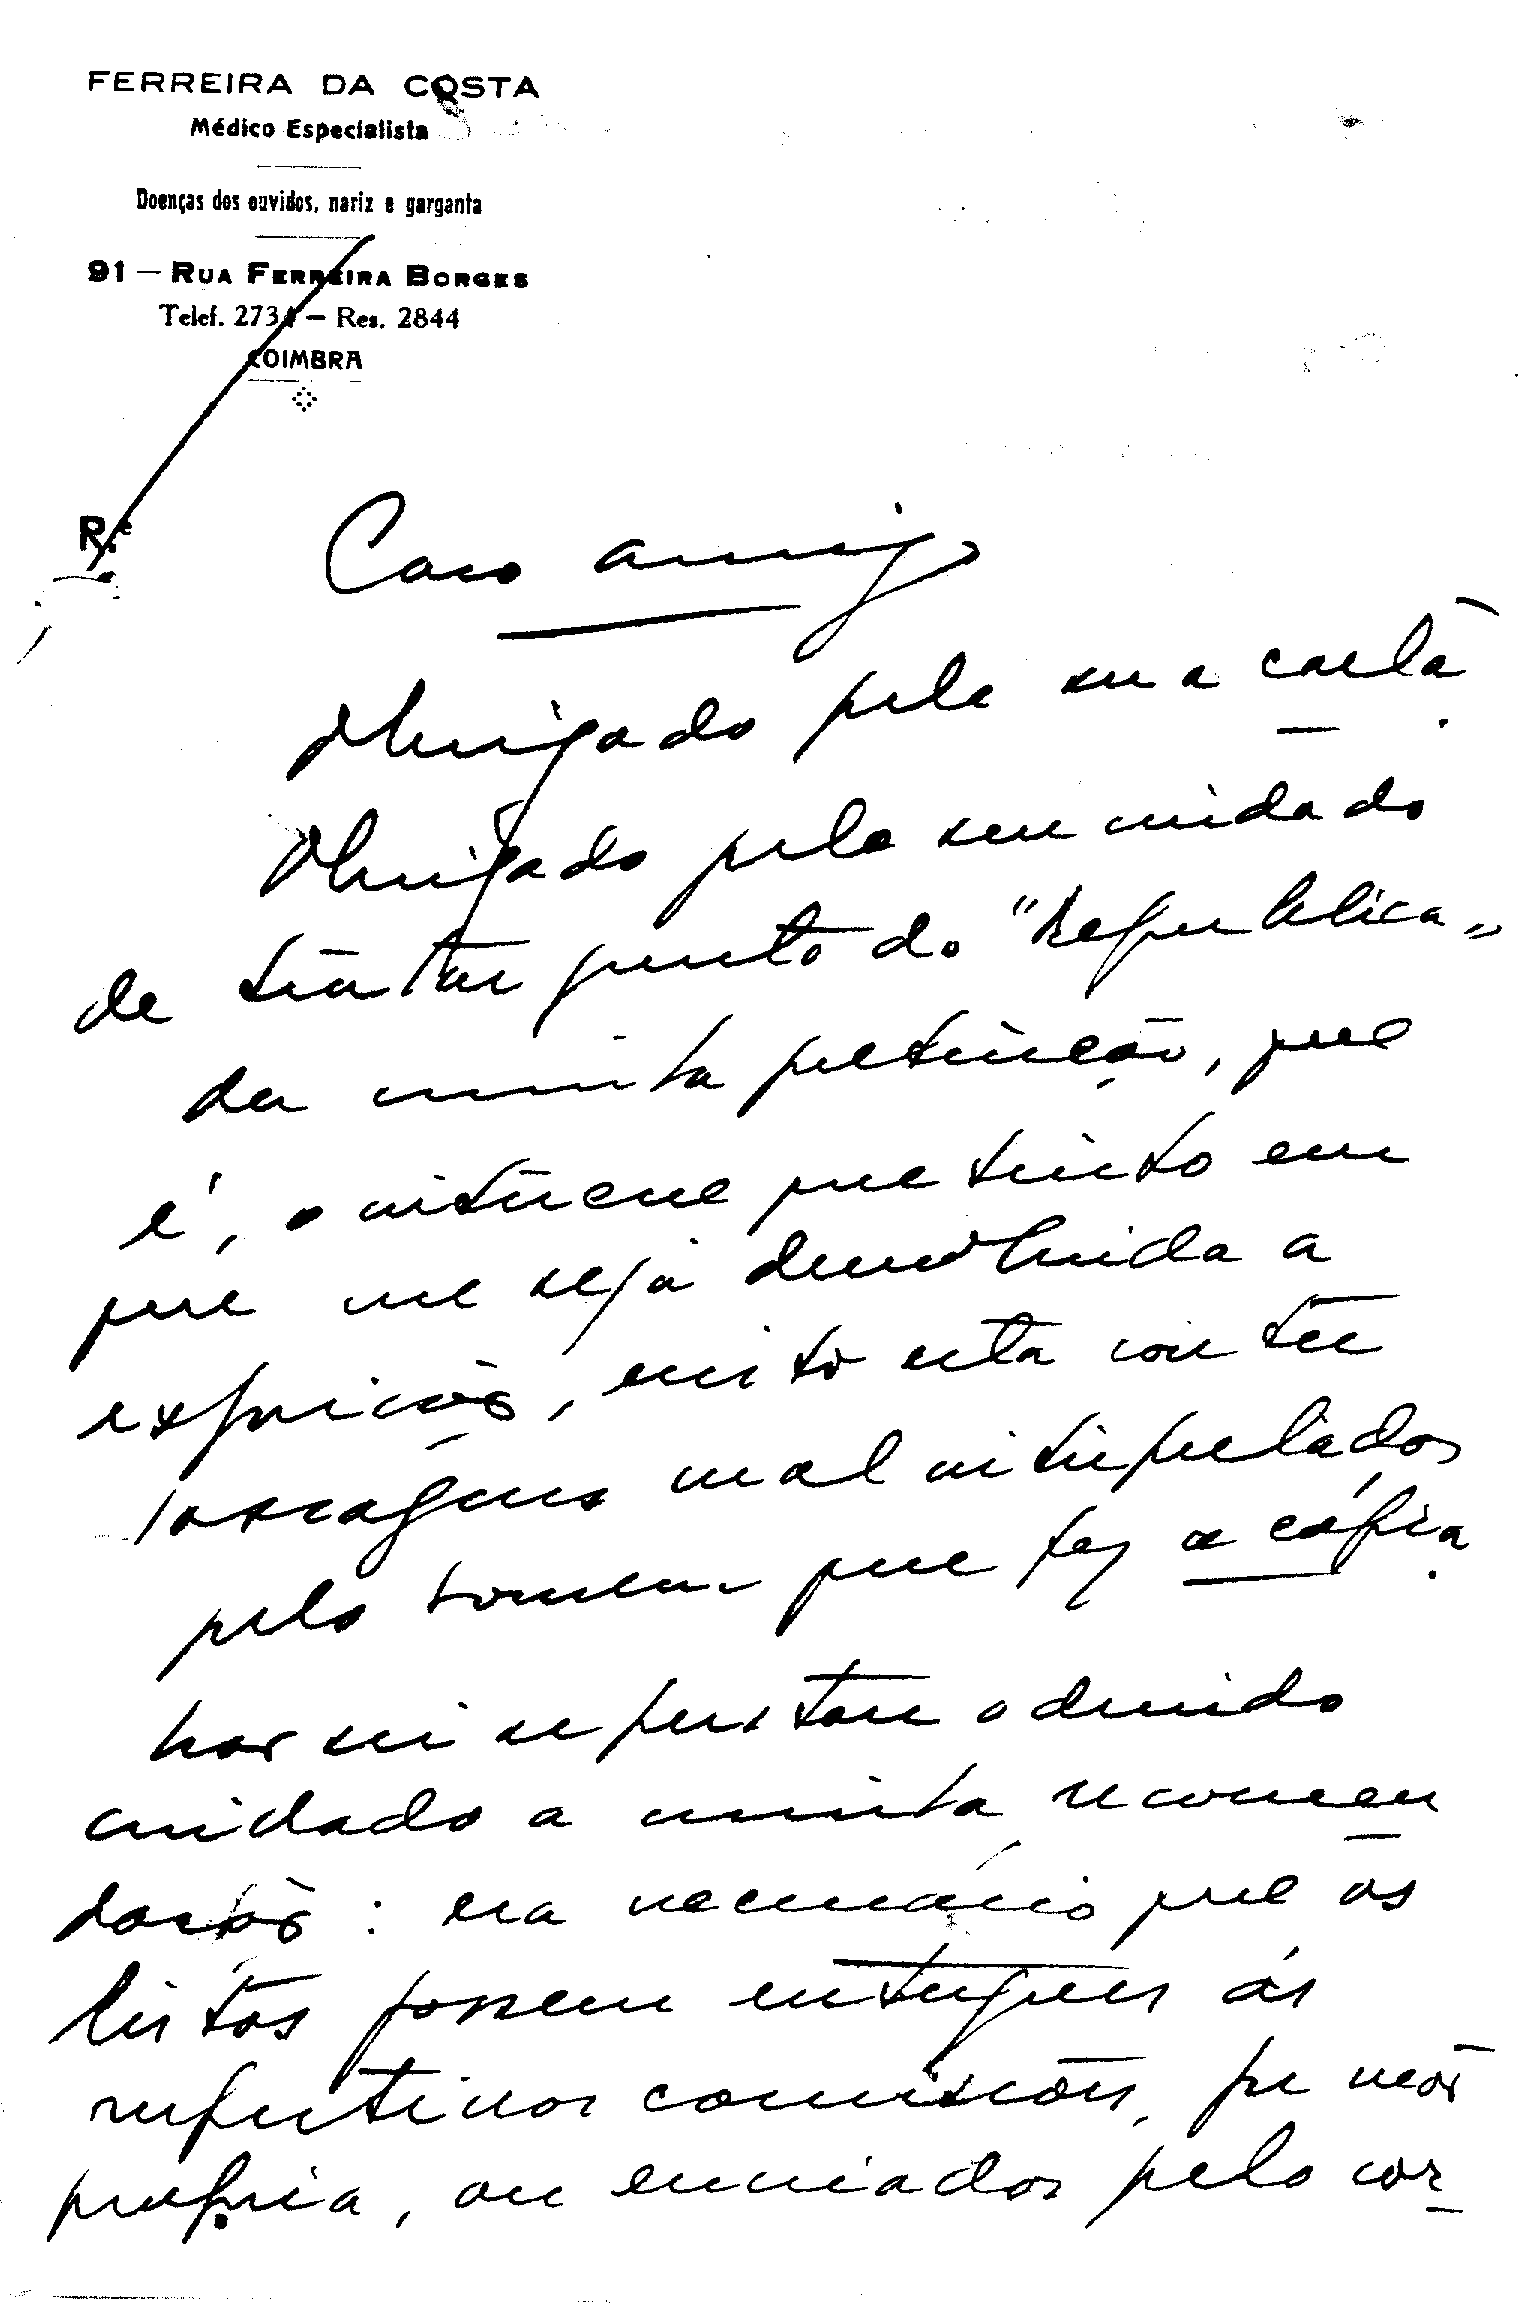 FERREIRA DA COSTA
Médico Especialista
Doenças dos ouvidos, nariz e garganta
91 — RUA FERREIRA BORGES
Telef. 2734 — Res. 2844
COIMBRA
R.e
Caro amigo
Obrigado pela sua carta.
Obrigado pelo seu cuidado
de tratar junto do "Republica"
da minha pretenção, que
é, o interesse que tinha em
que me seja devolvida a
exposição, visto esta conter
passagens mal interpretadas
pelo homem que fez a cópia.
Não sei se prestou o devido
cuidado a minha recomen
dação: era necessário que as
listas fossem entregues ás
respectivas comissões, por mão
propria, ou enviados pelo cor-